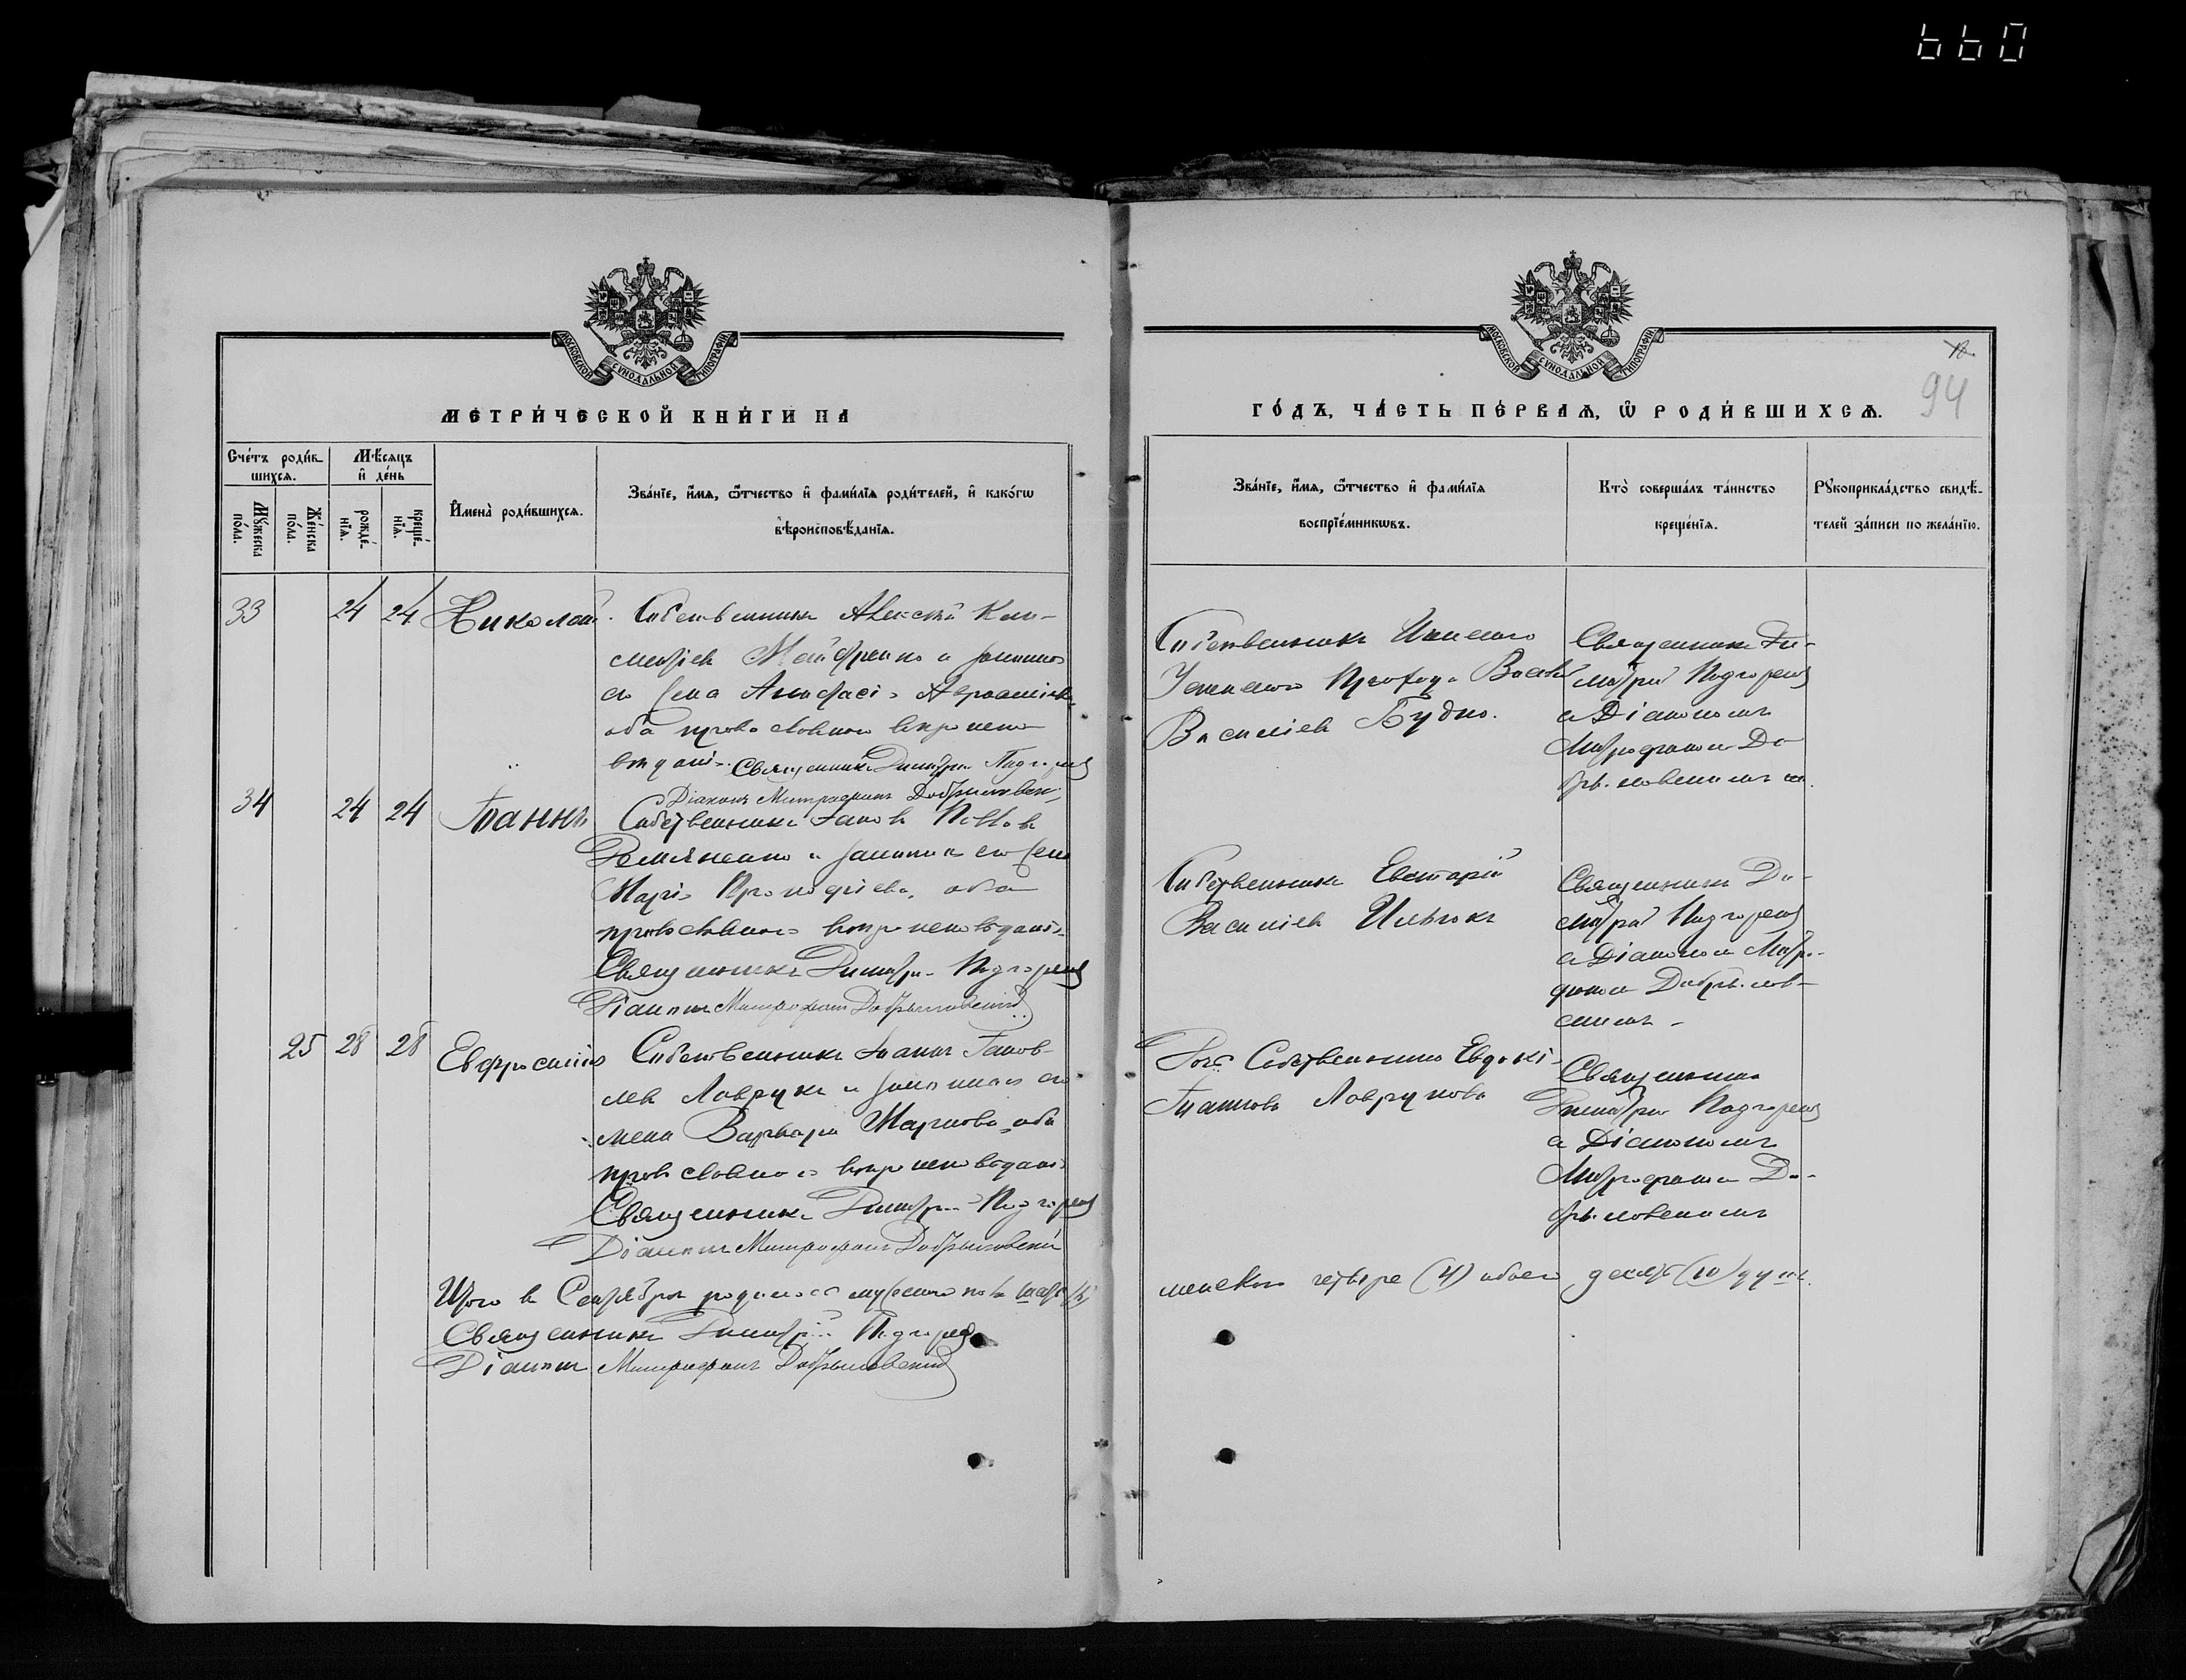 660
МОСКОВСКОЙ СѴНОДАЛЬНОЙ ТИПОГРАФІИ
МЕТРИ́ЧЕСКОЙ КНИ́ГИ НА
Сче́тъ роди́в-
шихсѧ.
Мꙋ́жеска
по́ла.
Же́нска
по́ла.
Мѣ́сѧцъ
и҆ де́нь
рожде́-
нїѧ.
креще́-
нїѧ.
И҆мена̀ роди́вшихсѧ.
Зва́нїе, и҆́мѧ, ѻ҆́тчество и҆ фами́лїѧ роди́телей, и҆ како́гѡ
вѣроисповѣ́данїѧ.
33 24 24 Николай Собственникъ Алексѣй Кли-
ментіев и законная
его жена Анастасія
оба православнаго вѣроиспо-
вѣданія. Священникъ Димитрій Подгорец
Діаконъ Митрофанъ Добрыловскій
34 24 24 Іоаннъ Собственникъ Іаковъ
и законная его жена
Марія оба
православнаго вѣроисповѣданія
Священникъ Димитрій Подгорец
Діаконъ Митрофанъ Добрыловскій
25 28 28 Евфросинія Собственникъ Іоаннъ Іаков-
лев Лаврукъ и законная его
жена Варвара Маркова, оба
православнаго вѣроисповѣданія
Священникъ Димитрій Подгорец
Діаконъ Митрофанъ Добрыловскій
Итого въ Сентябрѣ родилось мужеска пола шесть (6)
Священникъ Димитрій Подгорец
Діаконъ Митрофанъ Добрыловскій
МОСКОВСКОЙ СѴНОДАЛЬНОЙ ТИПОГРАФІИ
94
ГО́ДЪ, ЧА́СТЬ ПЕ́РВАѦ, Ѽ РОДИ́ВШИХСѦ.
Зва́нїе, и҆́мѧ, ѻ҆́тчество и҆ фами́лїѧ
воспрїе́мникѡвъ.
Кто̀ соверша́лъ та́инство
креще́нїѧ.
Рꙋкоприкла́дство свидѣ́-
телей за́писи по жела́нїю.
Собственникъ
Василіев Будно.
Священникъ Ди-
митрій Подгорец
съ Діакономъ
Митрофаномъ До-
брыловскимъ
Собственникъ Евстафій
Василіев
Священникъ Ди-
митрій Подгорец
съ Діакономъ Митро-
фаномъ Добрылов-
скимъ
Собственника Евдокія
Іоаннова Лаврукова
Священникъ
Димитрій Подгорец
съ Діакономъ
Митрофаномъ До-
брыловскимъ
женска четыре (4) обоего десять (10) душъ.